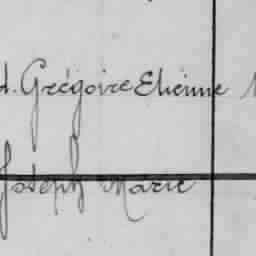 d. Grégoire Etienne
Joseph Marie